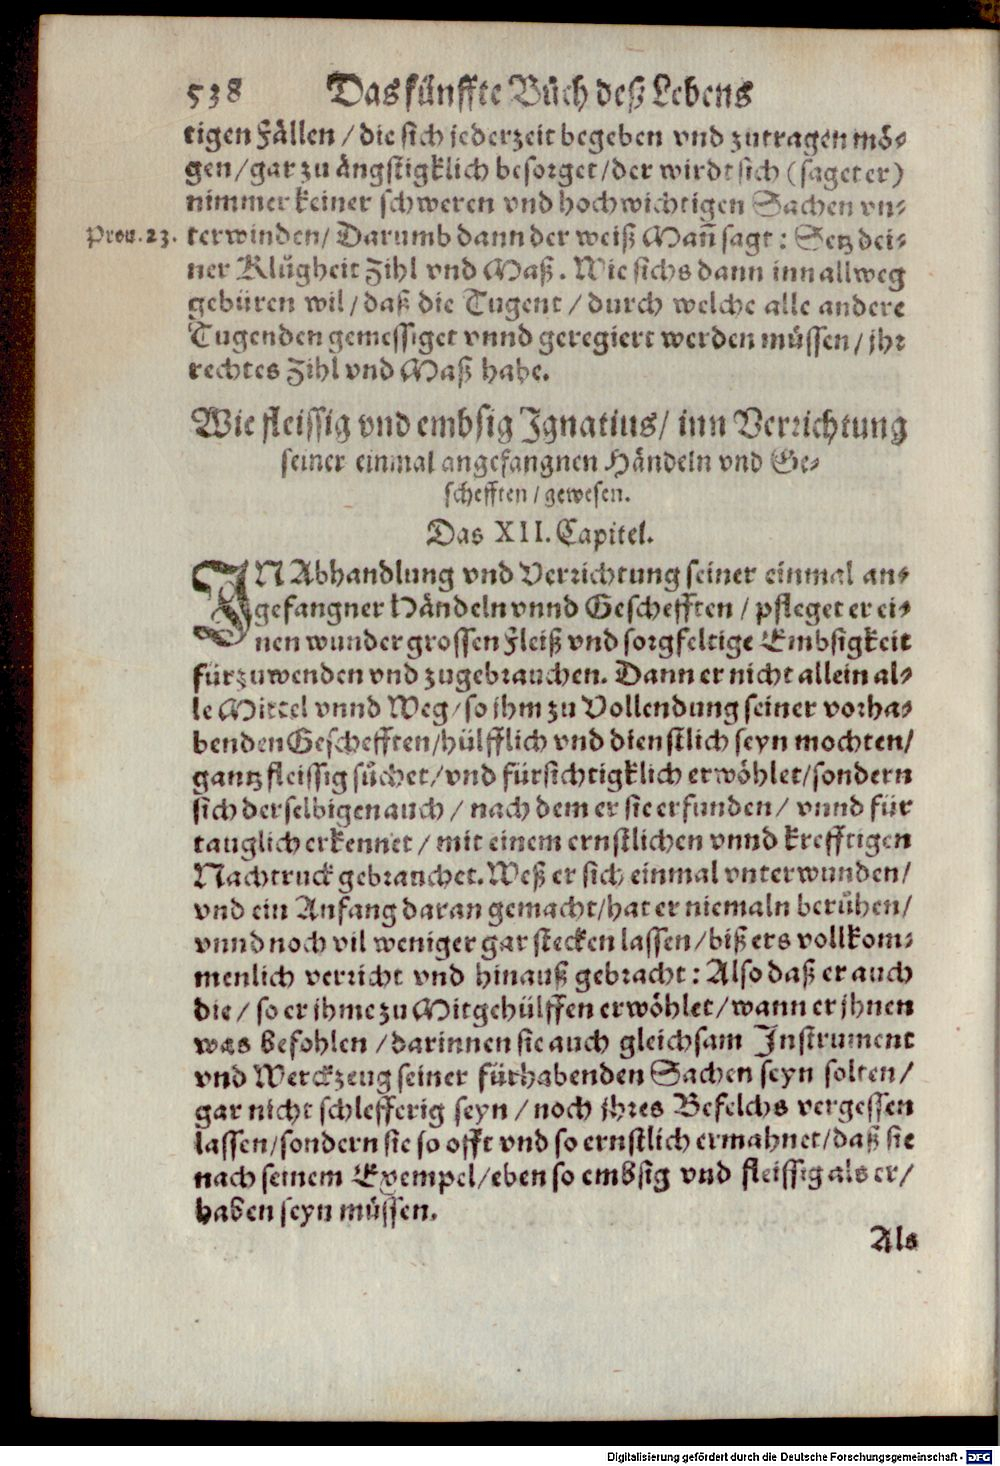 538 Das fünffte Bůch deß Lebens
tigen Fällen / die sich jederzeit begeben vnd zutragen mö-
gen / gar zu ängstigklich besorget / der wirdt sich (saget er)
nimmer keiner schweren vnd hochwichtigen Sachen vn-
Prou. 23. terwinden / Darumb dann der weiß Mañ sagt : Setz dei-
ner Klůgheit Zihl vnd Maß. Wie sichs dann inn allweg
gebüren wil / daß die Tugent / durch welche alle andere
Tugenden gemessiget vnnd geregiert werden müssen / jhr
rechtes Zihl vnd Maß habe.
Wie fleissig vnd embsig Ignatius / inn Verrichtung
seiner einmal angefangnen Händeln vnd Ge-
schefften / gewesen.
Das XII. Capitel.
IN Abhandlung vnd Verrichtung seiner einmal an-
gefangner Händeln vnnd Geschefften / pfleget er ei-
nen wunder grossen Fleiß vnd sorgfeltige Embsigkeit
fürzuwenden vnd zugebrauchen. Dann er nicht allein al-
le Mittel vnnd Weg / so jhm zu Vollendung seiner vorha-
benden Geschefften / hülfflich vnd dienstlich seyn mochten /
gantz fleissig sůchet / vnd fürsichtigklich erwöhlet / sondern
sich derselbigen auch / nach dem er sie erfunden / vnnd für
tauglich erkennet / mit einem ernstlichen vnnd krefftigen
Nachtruck gebrauchet. Weß er sich einmal vnterwunden /
vnd ein Anfang daran gemacht / hat er niemaln berůhen /
vnnd noch vil weniger gar stecken lassen / biß ers vollkom-
menlich verricht vnd hinauß gebracht : Also daß er auch
die / so er jhme zu Mitgehülffen erwöhlet / wann er jhnen
was befohlen / darinnen sie auch gleichsam Instrument
vnd Werckzeug seiner fürhabenden Sachen seyn solten /
gar nicht schlefferig seyn / noch jhres Befelchs vergessen
lassen / sondern sie so offt vnd so ernstlich ermahnet / daß sie
nach seinem Exempel / eben so embsig vnd fleissig als er /
haben seyn müssen.
Als
Digitalisierung gefördert durch die Deutsche Forschungsgemeinschaft - DFG